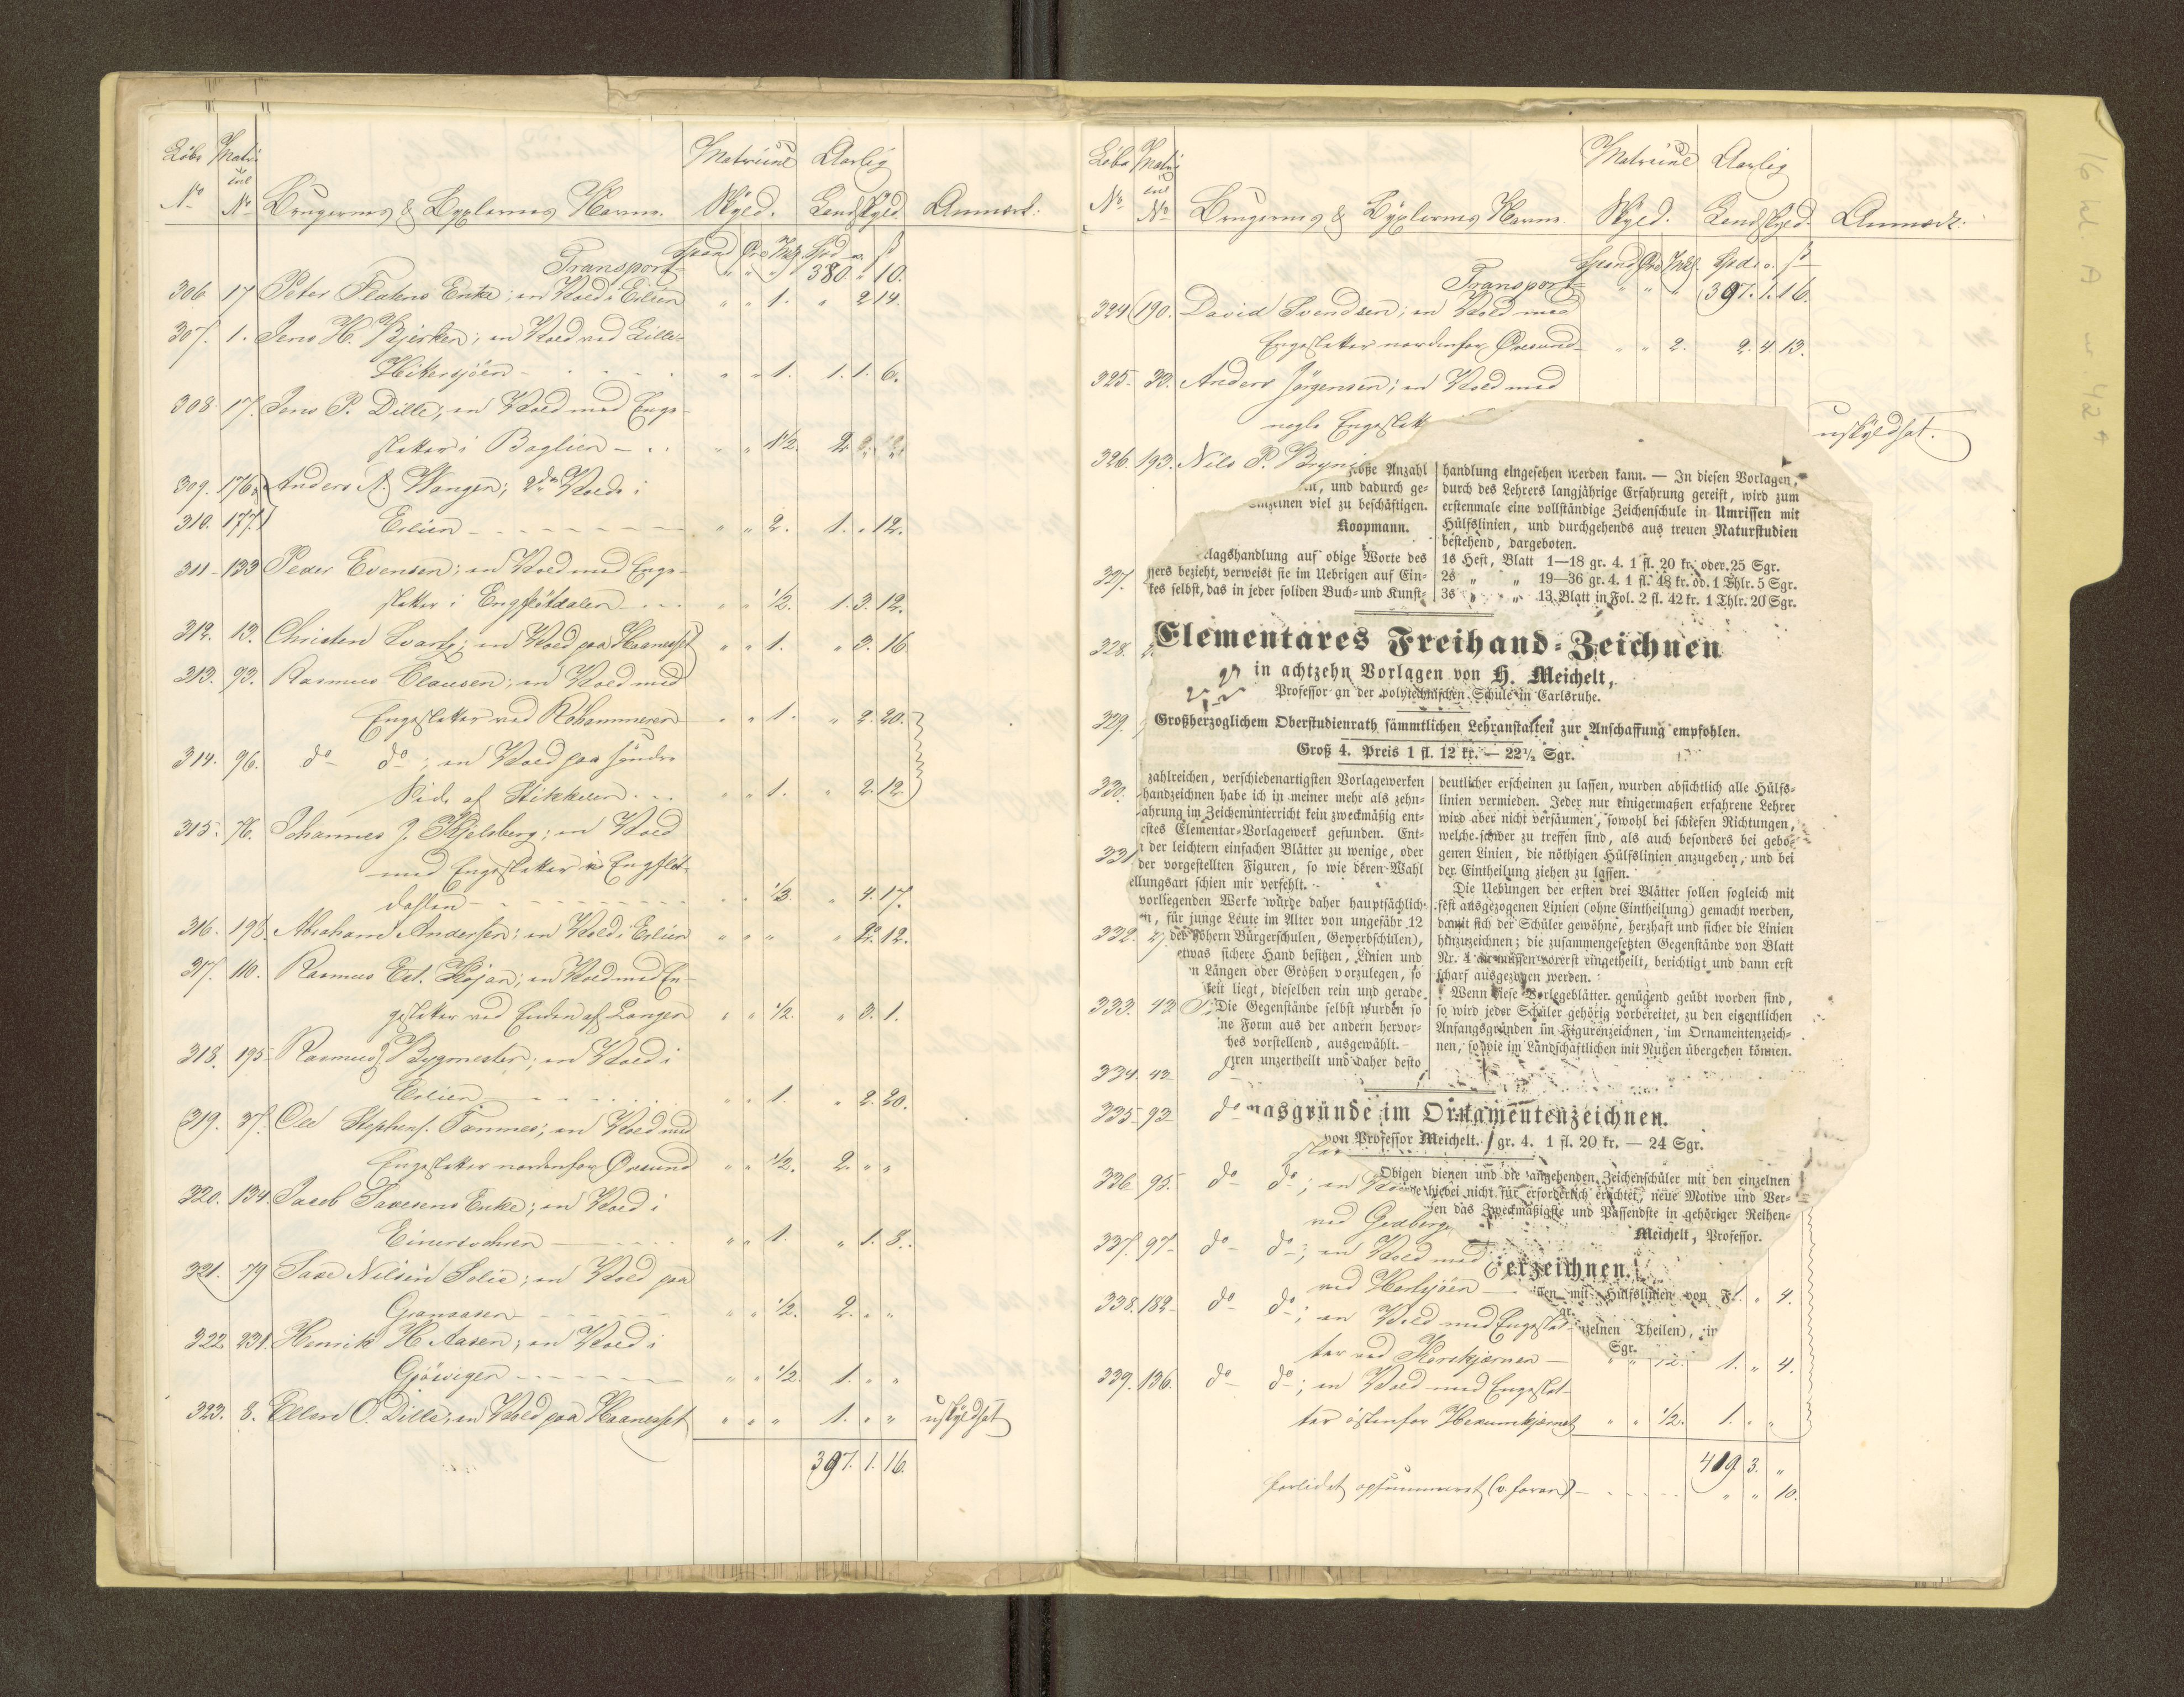 Löbe Matri Matricul Aarlig
cul
No No Brugernes & Bygslernes Havne. Skyld. Landskyld. Anmærk:
Spand Øre Mkl. Spd. o. ß
Transport „ „ „ 380 „ 10.
306. 17 Peter Flatens Enke; en Vold i Erlien „ „ 1. „ 2 14.
307. 1. Jens H. Bjerken; en Vold ved Lille-
Hitersjöen - „ „ 1. 1. 1. 6.
308. 17. Jens P. Dille; en Vold med Enge-
slatter i Boglien - „ „ 1½. 2.
309. 176. Anders A. Wangen; 2de Volde i
310. 177. Erlien - „ „ 2. 1. „ 12.
311. 133 Peder Evensen; en Vold med Enge-
slatter i Engslötdalen - „ „ ½. 1. 3. 12.
312. 13. Christen Svartz; en Vold paa Haaneset „ „ 1. „ 3. 16
313. 93. Rasmus Clausen; en Vold med
Engeslatter ved Röhammeren „ „ 1. „ 2. 20.
314. 96. do do; en Vold paa söndre
Side af Stikkelen. „ „ 1. „ 2. 12.
315. 76. Johannes J. Kjelsberg; en Vold
med Engeslatter i Engslöt-
dahlen - „ „ ½. „ 4. 17.
316. 198. Abraham Andersen; en Vold i Erlien „ „ „ „ 2. 12.
317. 110. Rasmus Erl. Höjar; en Vold med En-
geslatter ved Enden af Langen „ „ ½. „ 3. 1.
318. 195. Rasmus Bygmester; en Vold i
Erlien - „ „ 1. „ 2. 20.
319. 37. Ole Stephens. Tamnes; en Vold med
Engeslatter nordenfor Øresund „ „ ½. 2. „ „
320. 134. Jacob Saxesens Enke; en Vold i
Einersvolden - „ „ 1. „ 1. 8.
321. 79 Saxe Nilsen Solie; en Vold paa
Granaasen - „ „ ½. 2. „ „
322. 231. Henrik H. Aasen; en Vold i
Gjösvigen - „ „ ½. 1. „ „
323. 8. Ellen O. Dille; en Vold paa Haaneset „ „ „ 1. „ „ uskyldsat
397. 1. 16.
Löbe Matri Matricul Aarlig
cul
No No Brugernes & Bygslernes Havne. Skyld. Landskyld. Anmærk:
Spand Øre Mkl. Spd. o. ß
Transport „ „ „ 397. 1. 16.
324 190. David Svendsen; en Vold med
Engeslatter nordenfor Øresund „ „ 2. 2. 4 13.
325. 30. Anders Jörgensen; en Vold med
nogle Engeslatt uskyldsat.
326. 193. Nils P. Bryni
327.
328.
329.
330.
331
332.
333. 42
334. 42
335 93 do
336 95. do do; en
ved Gedberge
337. 97 do do; en Vold med
ved Harsjöen - „ 4.
338. 182 do do; en Vold med Engeslat-
ter ved Korskjernen - „ „ 1. „ 4.
339. 136. do do; en Vold med Engeslat-
ter östenfor Hexumkjernet „ „ ½. 1. „ „
419 3. „
forlidet opsummeret (v. foran) - „ „ 10.
große Anzahl
und dadurch ge-
einzelnen viel zu beschäftigen.
Koopmann.
lagshandlung auf obige Worte des
sers bezieht, verweist sie im Uebrigen auf Ein-
kes selbst, das in jeder soliden Buch- und Kunst-
handlung eingesehen werden kann. — In diesen Vorlagen,
durch des Lehrers langjährige Erfahrung gereift, wird zum
erstenmale eine vollständige Zeichenschule in Umrissen mit
Hülfslinien, und durchgehends aus treuen Naturstudien
bestehend, dargeboten.
1s Heft, Blatt 1—18 gr. 4. 1 fl. 20 kr. oder 25 Sgr.
2s „ „ 19—36 gr. 4. 1 fl. 48 kr. od. 1 Thlr. 5 Sgr.
3s „ „ 13 Blatt in Fol. 2 fl. 42 kr. 1 Thlr. 20 Sgr.
Elementares Freihand-Zeichnen
in achtzehn Vorlagen von H. Meichelt,
Professor an der polytechnischen Schule in Carlsruhe.
Großherzoglichem Oberstudienrath sämmtlichen Lehranstalten zur Anschaffung empfohlen.
Groß 4. Preis 1 fl. 12 kr. — 22½ Sgr.
zahlreichen, verschiedenartigsten Vorlagewerken
handzeichnen habe ich in meiner mehr als zehn-
ahrung im Zeichenunterricht kein zweckmäßig ent-
estes Elementar-Vorlagewerk gefunden. Ent-
n der leichtern einfachen Blätter zu wenige, oder
der vorgestellten Figuren, so wie deren Wahl
ellungsart schien mir verfehlt.
vorliegenden Werke würde daher hauptsächlich
n, für junge Leute im Alter von ungefähr 12
der höhern Bürgerschulen, Gewerbschulen),
etwas sichere Hand besitzen, Linien und
n Längen oder Größen vorzulegen, so
keit liegt, dieselben rein und gerade
Die Gegenstände selbst wurden so
ne Form aus der andern hervor-
hes vorstellend, ausgewählt.
ren unzertheilt und daher desto
deutlicher erscheinen zu lassen, wurden absichtlich alle Hülfs-
linien vermieden. Jeder nur einigermaßen erfahrene Lehrer
wird aber nicht versäumen, sowohl bei schiefen Richtungen,
welche schwer zu treffen sind, als auch besonders bei gebo-
genen Linien, die nöthigen Hülfslinien anzugeben, und bei
der Eintheilung ziehen zu lassen.
Die Uebungen der ersten drei Blätter sollen sogleich mit
fest ausgezogenen Linien (ohne Eintheilung) gemacht werden,
damit sich der Schüler gewöhne, herzhaft und sicher die Linien
hinzuzeichnen; die zusammengesetzten Gegenstände von Blatt
Nr. 4 an müssen vorerst eingetheilt, berichtigt und dann erst
scharf ausgezogen werden.
Wenn diese Vorlegeblätter genügend geübt worden sind,
so wird jeder Schüler gehörig vorbereitet, zu den eigentlichen
Anfangsgründen im Figurenzeichnen, im Ornamentenzeich-
nen, sowie im Landschaftlichen mit Nutzen übergehen können.
ngsgründe im Ornamentenzeichnen.
von Professor Meichelt. gr. 4. 1 fl. 20 kr. — 24 Sgr.
Obigen dienen und die angehenden Zeichenschüler mit den einzelnen
hiebei nicht für erforderlich erachtet, neue Motive und Ver-
en das Zweckmäßigste und Passendste in gehöriger Reihen-
Meichelt, Professor.
erzeichnen.
mit Hülfslinien von F.
gr.
nzelnen Theilen), in
Sgr.